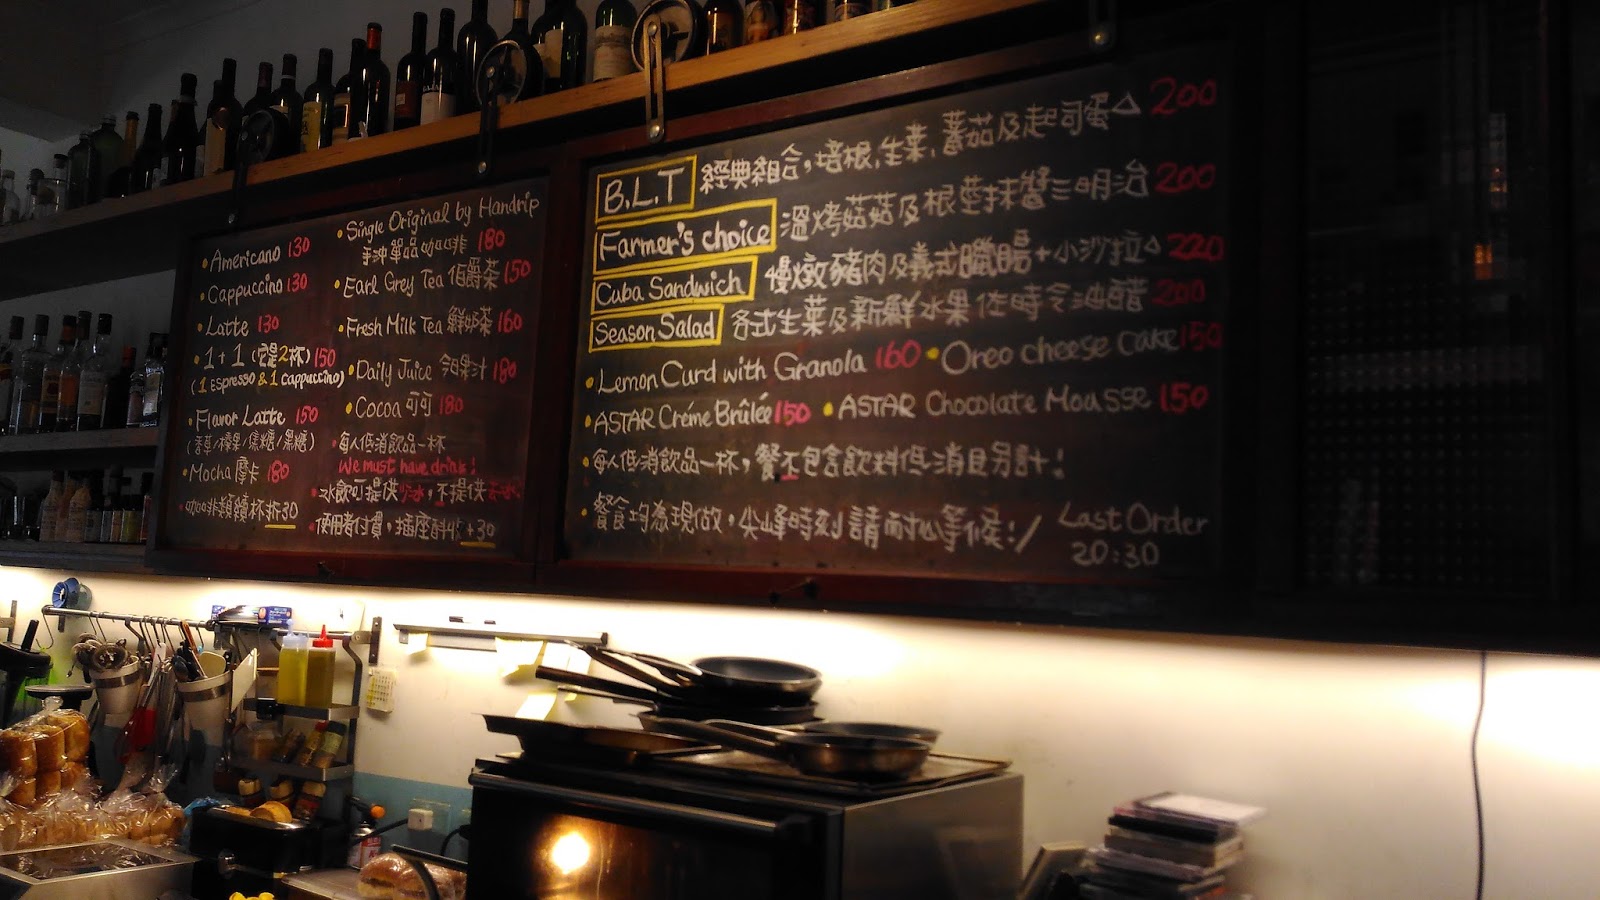 Americano 130
Cappuccino 130
Latte 130
1 + 1 (它是2杯) 150
(1 Espresso & 1 Cappuccino)
Flavor Latte 150
(香草/榛果/焦糖/黑糖)
Mocha 摩卡 180
咖啡類續杯折30
Single Original by Handrip
手沖單品咖啡 180
Earl Grey Tea 伯爵茶 150
Fresh Milk Tea 鮮奶茶 160
Daily Juice 今日果汁 180
Cocoa 可可 180
每人低消飲品一杯
We must have drink!
冰飲可提供 不提供
使用者付費,插座酌收+30
B.L.T 經典組合,培根,生菜,蕃茄及起司蛋△ 200
Farmer's choice 溫烤菇菇及根莖抹醬三明治 200
Cuba Sandwich 慢燉豬肉及義式臘腸+小沙拉△ 220
Season Salad 各式生菜及新鮮水果佐時令油醋 200
Lemon Curd with Granola 160 Oreo cheese cake 150
ASTAR Créme Brûlée 150 ASTAR Chocolate Mousse 150
每人低消飲品一杯,餐不包含飲料低消且另計!
餐食均為現做,尖峰時刻請耐心等候:/
Last Order
20:30